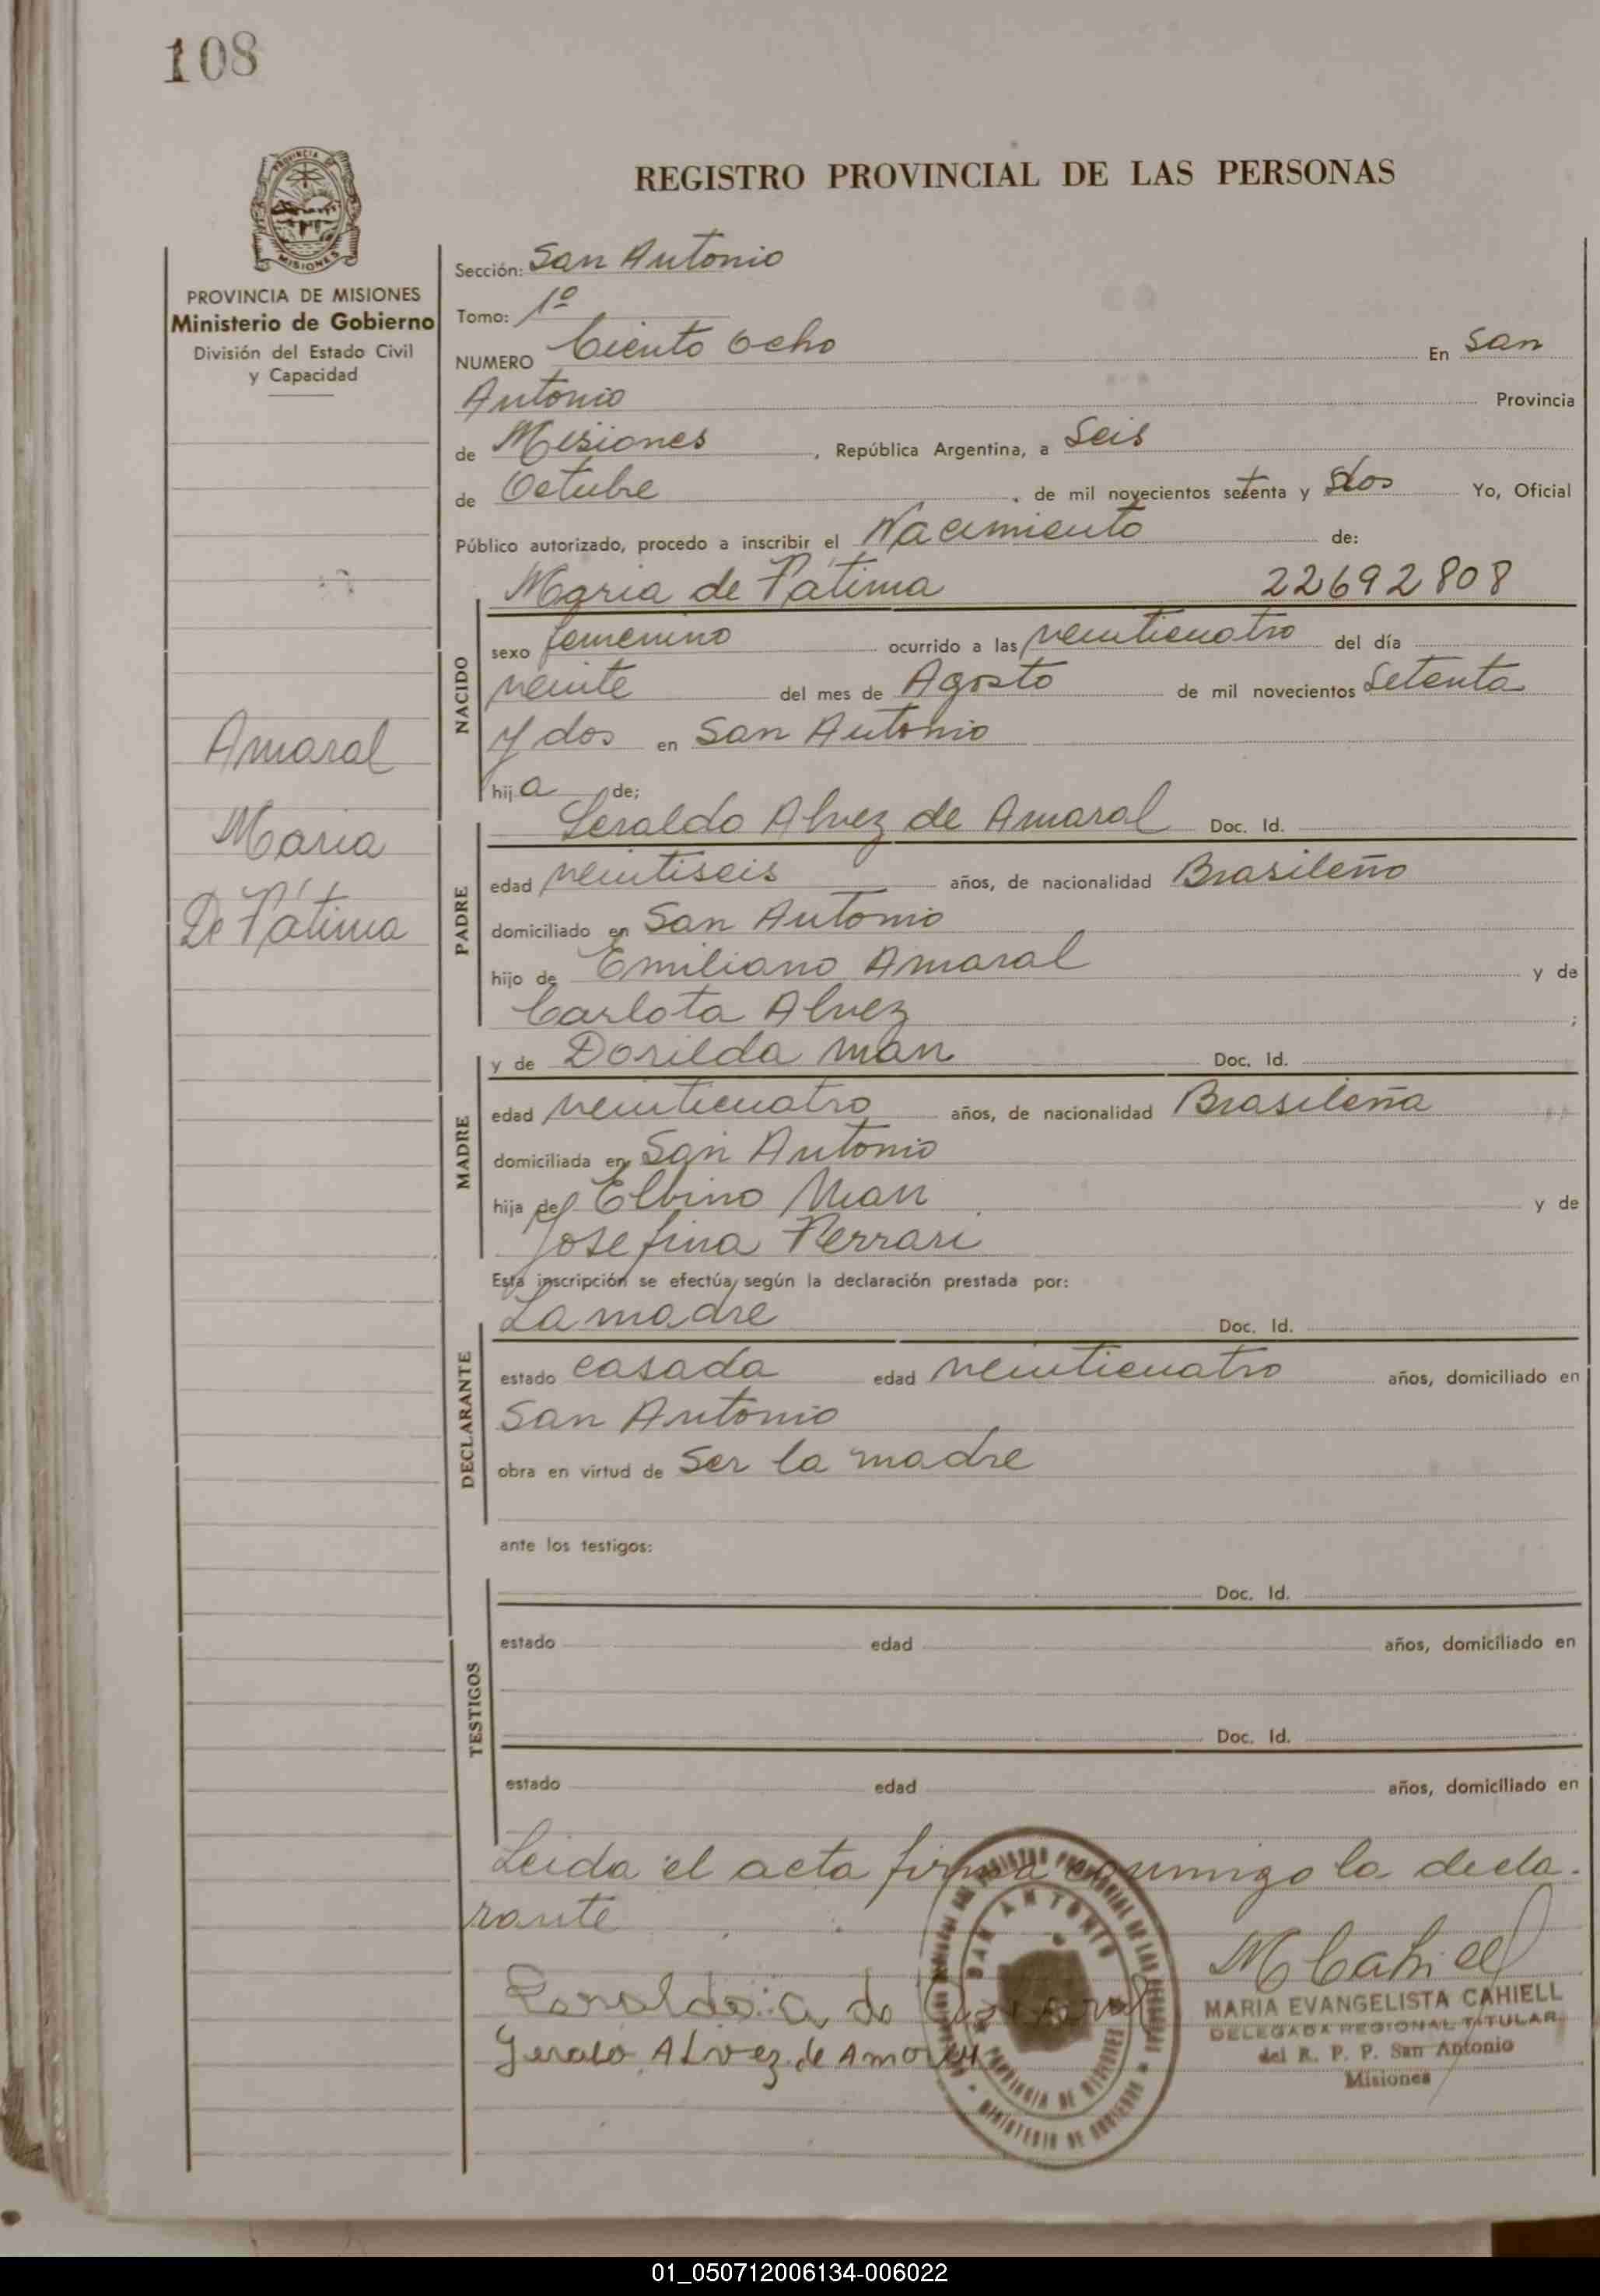 108
REGISTRO PROVINCIAL DE LAS PERSONAS
PROVINCIA DE MISIONES
Ministerio de Gobierno
División del Estado Civil
y Capacidad
Amaral
Maria
De Fátima
Sección: San Antonio
Tomo: 1º
NUMERO Ciento Ocho En San
Antonio Provincia
de Misiones, República Argentina, a Seis
de Octubre, de mil novecientos setenta y dos Yo, Oficial
Público autorizado, procedo a inscribir el Nacimiento de:
Maria de Fátima 22692808
NACIDO
sexo femenino ocurrido a las veinticuatro del día
veinte del mes de Agosto de mil novecientos Setenta
y dos en San Antonio
hija de;
Geraldo Alvez de Amaral Doc. Id.
PADRE
edad veintiseis años, de nacionalidad Brasileño
domiciliado en San Antonio
hijo de Emiliano Amaral y de
Carlota Alvez ;
y de Dorilda Man Doc. Id.
MADRE
edad veinticuatro años, de nacionalidad Brasileña
domiciliada en San Antonio
hija de Elbino Man y de
Josefina Ferrari
Esta inscripción se efectúa, según la declaración prestada por:
La madre Doc. Id.
DECLARANTE
estado casada edad veinticuatro años, domiciliado en
San Antonio
obra en virtud de Ser la madre
ante los testigos:
TESTIGOS
Doc. Id.
estado edad años, domiciliado en
Doc. Id.
estado edad años, domiciliado en
Leida el acta firma conmigo la decla-
rante
M Cahiell
MARIA EVANGELISTA CAHIELL
DELEGADA REGIONAL TITULAR
del R. P. P. San Antonio
Misiones
Alvez de
SAN ANTONIO
PROVINCIA DE MISIONES
MINISTERIO DE GOBIERNO
01_050712006134-006022